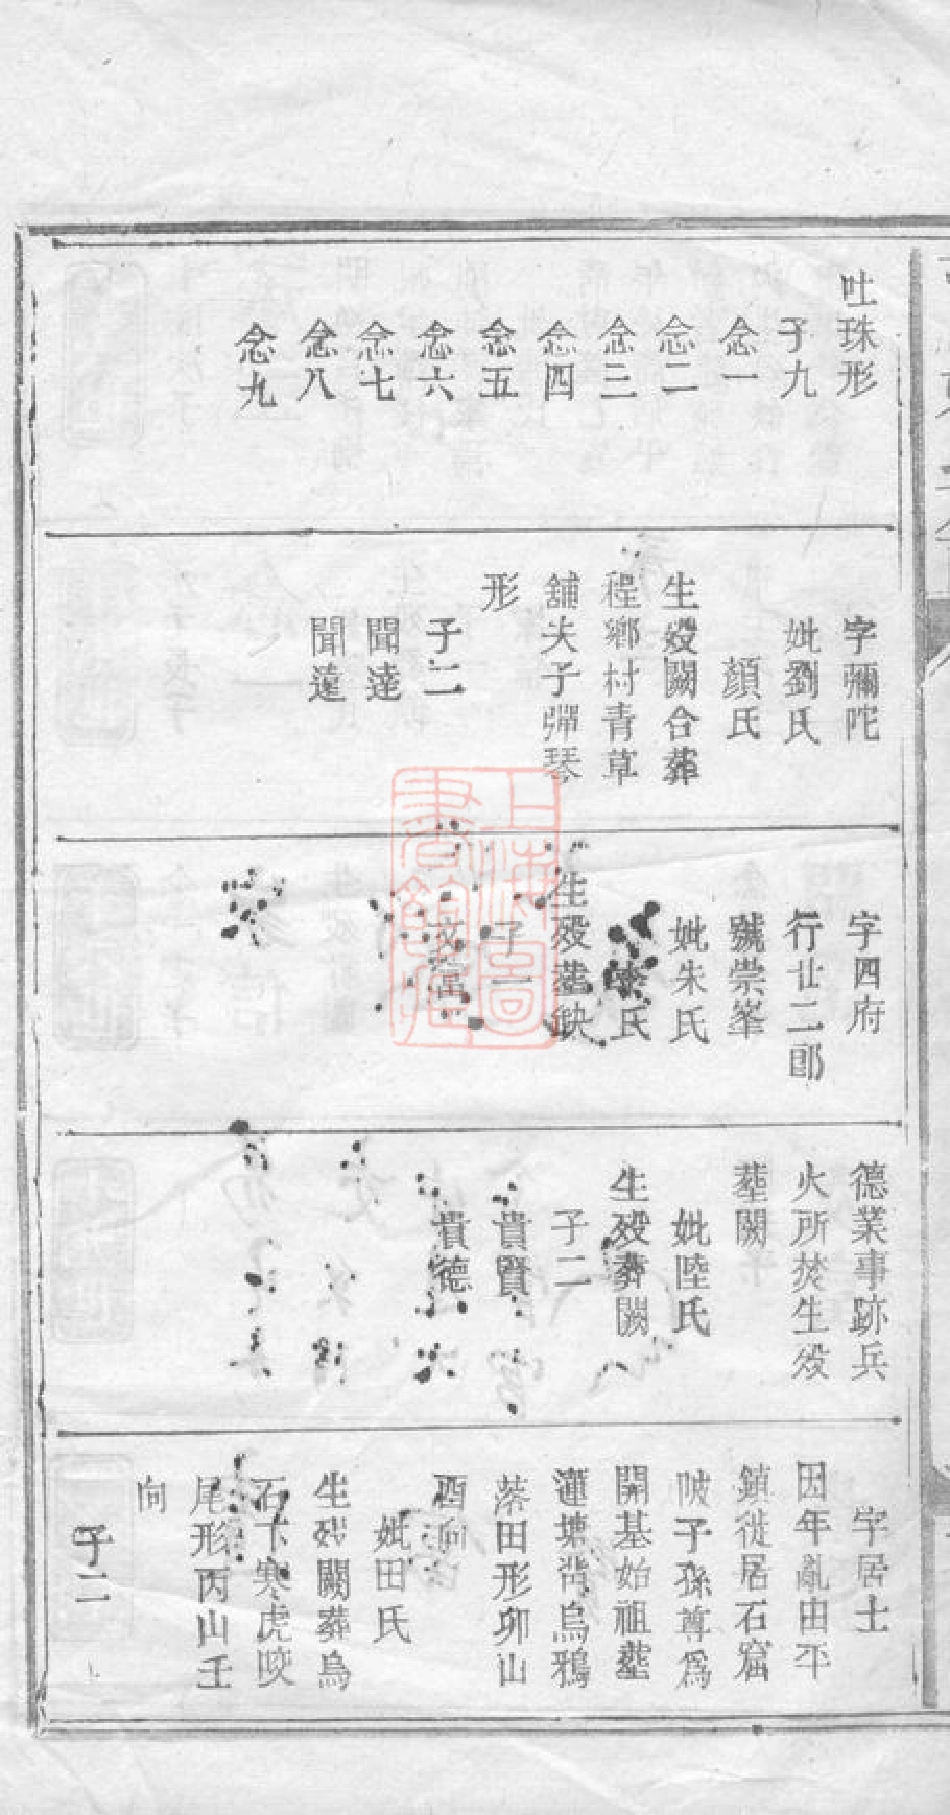 吐珠形
子九
念一
念二
念三
念四
念五
念六
念七
念八
念九
字彌陀
妣劉氏
顏氏
生歿闕合葬
程鄉村青草
舖夫子彈琴
形
子二
聞達
聞遠
字四府
行廿二郎
號崇峯
妣朱氏
氏
生歿塟缺
子一
文富
德業事跡兵
火所焚生歿
塟闕
妣陸氏
生歿葬闕
子二
貴賢
貴德
字居士
因年亂由平
鎮徙居石窟
陂子孫尊為
開基始祖塟
蓮塘背烏鴉
落田形卯山
酉向
妣田氏
生歿闕葬烏
石下寒虎咬
尾形丙山壬
向
子二
上海圖
書館藏